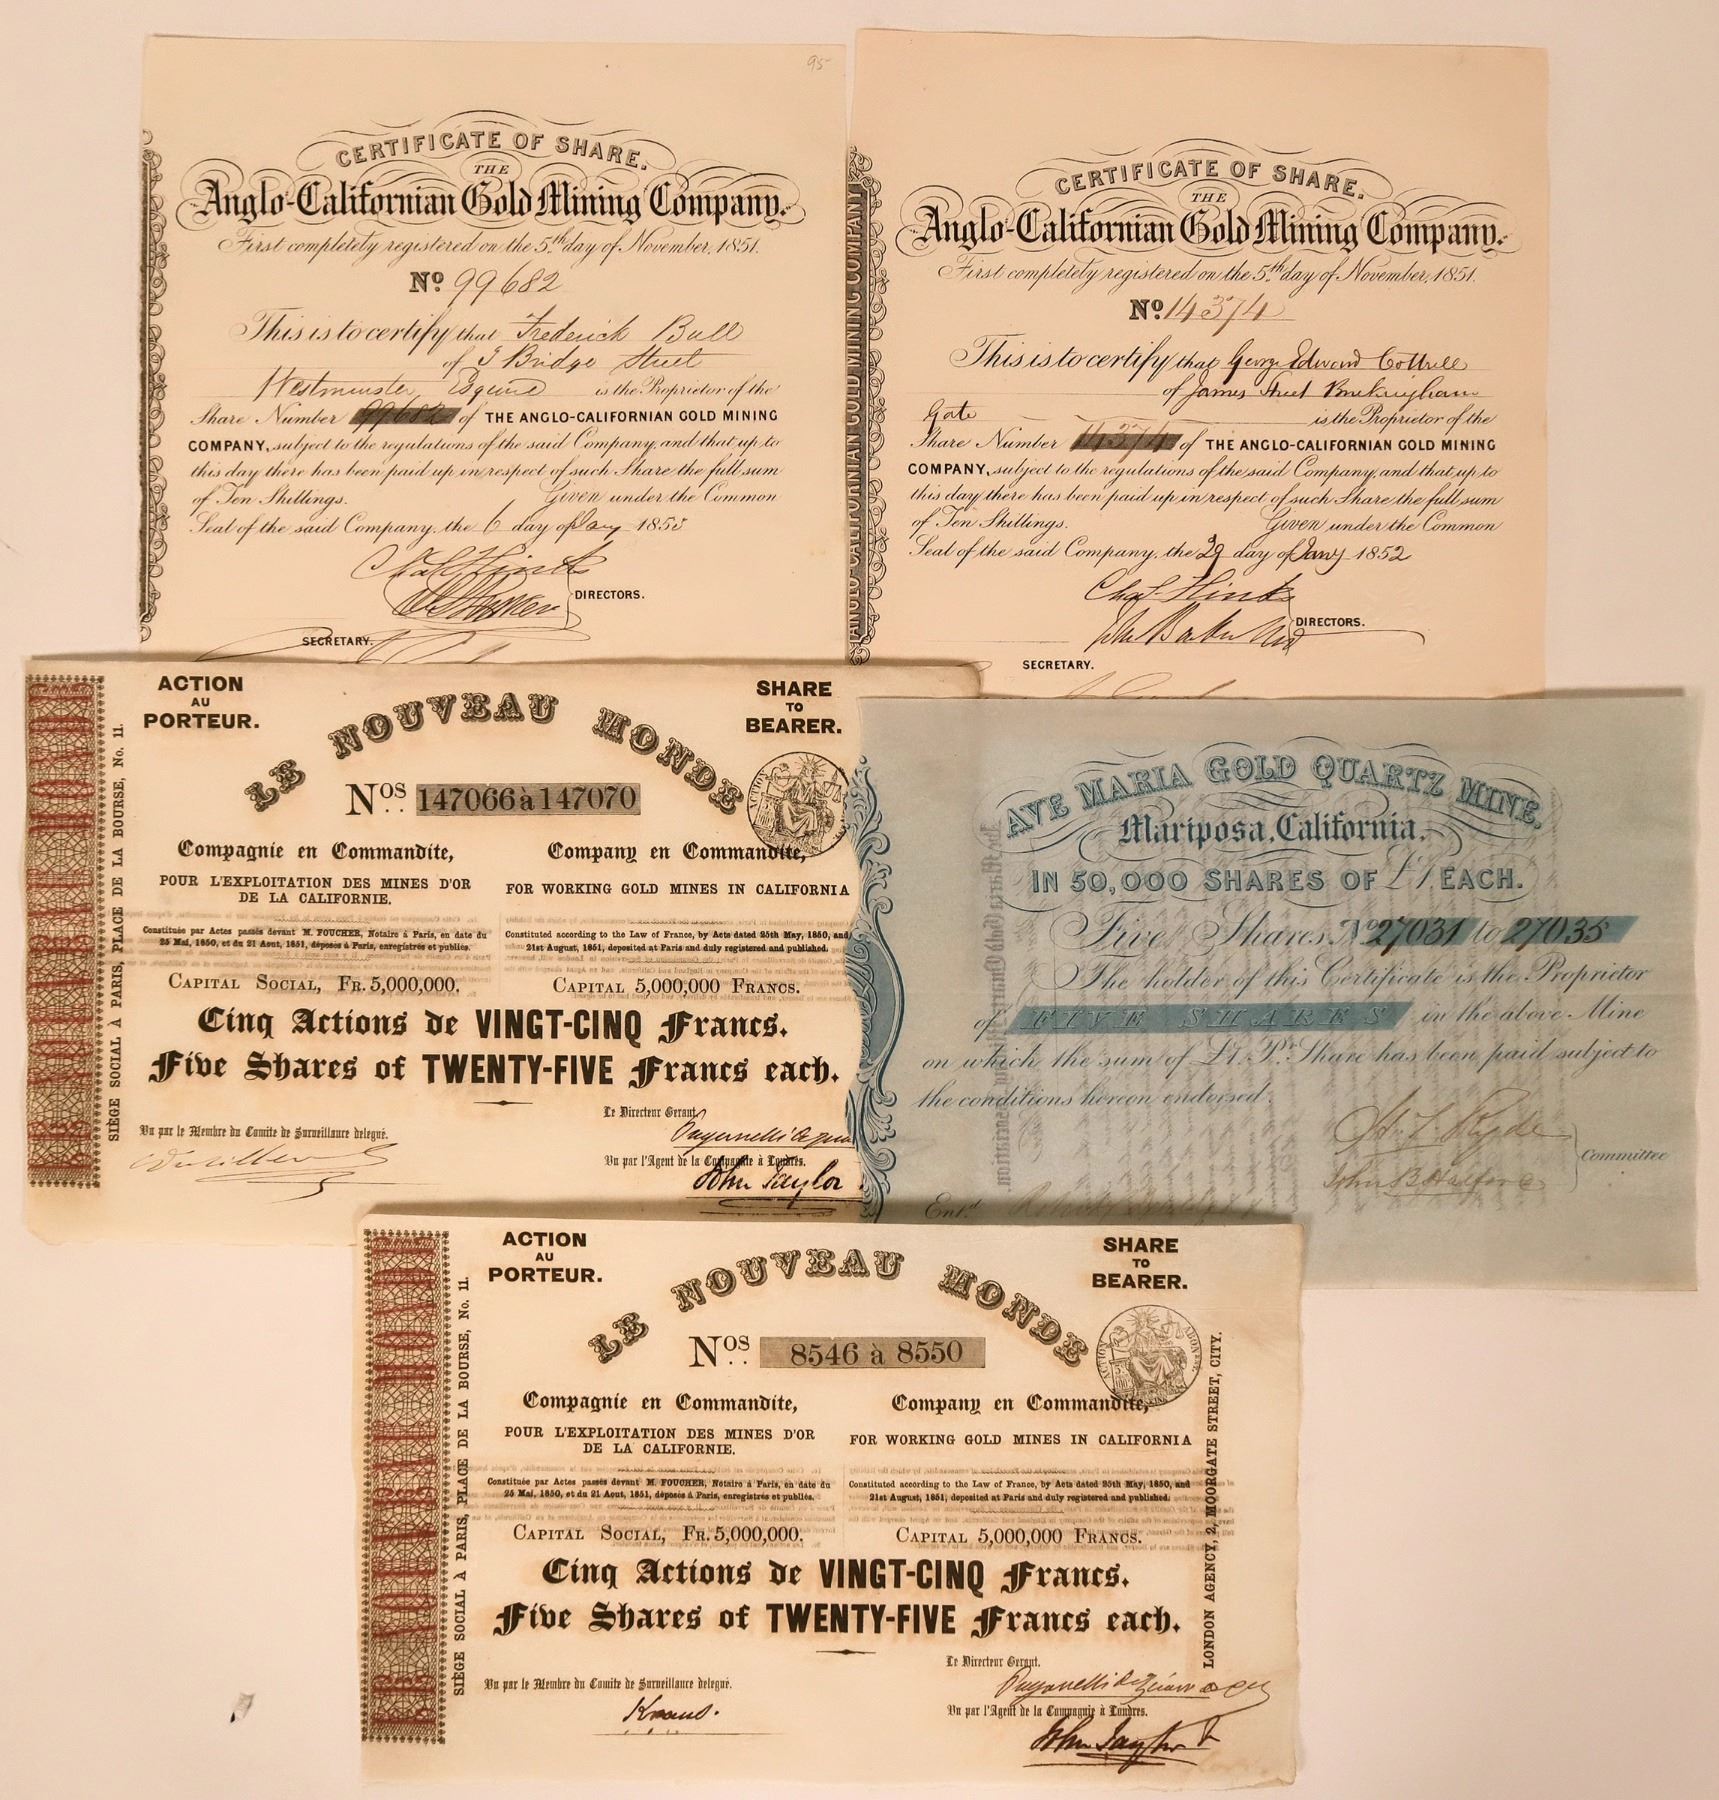 95
CERTIFICATE OF SHARE.
THE
Anglo-Californian Gold Mining Company.
First completely registered on the 5th day of November, 1851.
No 99682
This is to certify that Frederick Bull
of 3 Bridge Street
Westminster Esquire is the Proprietor of the
Share Number 99682 of THE ANGLO-CALIFORNIAN GOLD MINING
COMPANY, subject to the regulations of the said Company, and that up to
this day there has been paid up in respect of such Share the full sum
of Ten Shillings. Given under the Common
Seal of the said Company, the 6 day of Jany 1853
Chas Hinks
DIRECTORS.
SECRETARY.
ANGLO CALIFORNIAN GOLD MINING COMPANY
CERTIFICATE OF SHARE.
THE
Anglo-Californian Gold Mining Company.
First completely registered on the 5th day of November, 1851.
No 14374
This is to certify that George Edward Cottrell
of James Street Buckingham
Gate is the Proprietor of the
Share Number 14374 of THE ANGLO-CALIFORNIAN GOLD MINING
COMPANY, subject to the regulations of the said Company, and that up to
this day there has been paid up in respect of such Share the full sum
of Ten Shillings. Given under the Common
Seal of the said Company, the 29 day of Jany 1852
Chas Hinks
DIRECTORS.
SECRETARY.
SIÈGE SOCIAL À PARIS, PLACE DE LA BOURSE, No. 11.
ACTION
AU
PORTEUR.
SHARE
TO
BEARER.
LE NOUVEAU MONDE
Nos 147066 à 147070
ACTION
Compagnie en Commandite,
POUR L'EXPLOITATION DES MINES D'OR
DE LA CALIFORNIE.
Company en Commandite,
FOR WORKING GOLD MINES IN CALIFORNIA
Constituée par Actes passés devant M. FOUCHER, Notaire à Paris, en date du
25 Mai, 1850, et du 21 Aout, 1851, déposés à Paris, enregistrés et publiés.
Constituted according to the Law of France, by Acts dated 25th May, 1850, and
21st August, 1851, deposited at Paris and duly registered and published.
CAPITAL SOCIAL, FR. 5,000,000.
CAPITAL 5,000,000 FRANCS.
Cinq Actions de VINGT-CINQ Francs.
Five Shares of TWENTY-FIVE Francs each.
Le Directeur Gerant,
Vu par le Membre du Comite de Surveillance delegué.
Vu par l'Agent de la Compagnie à Londres.
John Taylor
AVE MARIA GOLD QUARTZ MINE.
Mariposa, California.
IN 50,000 SHARES OF £1 EACH.
Five Shares No 27031 to 27035
The holder of this Certificate is the Proprietor
of FIVE SHARES in the above Mine
on which the sum of £1. Pr. Share has been paid subject to
the conditions hereon endorsed.
Committee
Entd
SIÈGE SOCIAL À PARIS, PLACE DE LA BOURSE, No. 11.
ACTION
AU
PORTEUR.
SHARE
TO
BEARER.
LE NOUVEAU MONDE
Nos 8546 à 8550
ACTION
Compagnie en Commandite,
POUR L'EXPLOITATION DES MINES D'OR
DE LA CALIFORNIE.
Company en Commandite,
FOR WORKING GOLD MINES IN CALIFORNIA
Constituée par Actes passés devant M. FOUCHER, Notaire à Paris, en date du
25 Mai, 1850, et du 21 Aout, 1851, déposés à Paris, enregistrés et publiés.
Constituted according to the Law of France, by Acts dated 25th May, 1850, and
21st August, 1851, deposited at Paris and duly registered and published.
CAPITAL SOCIAL, FR. 5,000,000.
CAPITAL 5,000,000 FRANCS.
Cinq Actions de VINGT-CINQ Francs.
Five Shares of TWENTY-FIVE Francs each.
Le Directeur Gerant.
Vu par le Membre du Comite de Surveillance delegué.
Kraus.
Vu par l'Agent de la Compagnie à Londres.
John Taylor
LONDON AGENCY, 2, MOORGATE STREET, CITY.